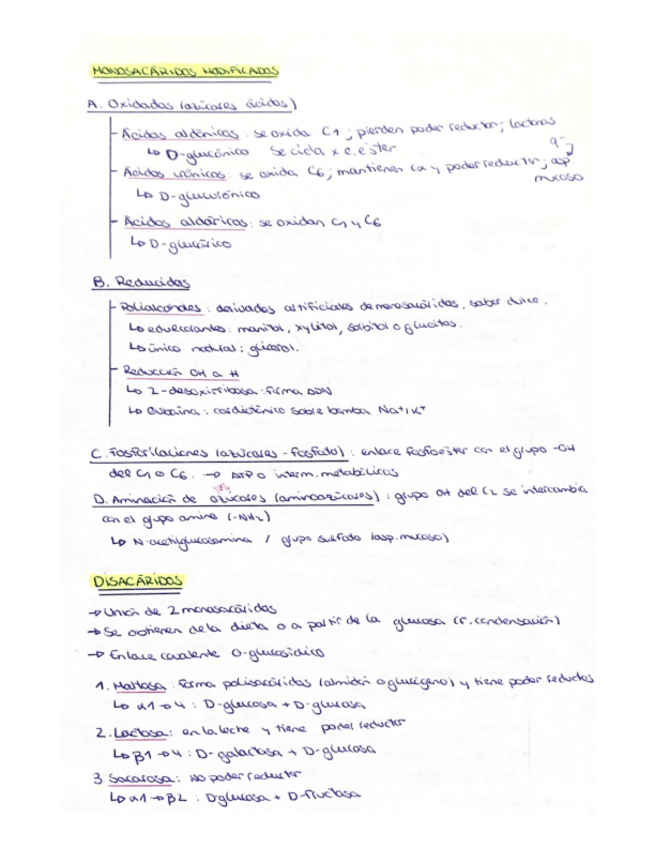 MONOSACÁRIDOS MODIFICADOS
A. Oxidados (azúcares ácidos)
- Ácidos aldónicos: se oxida C1; pierden poder reductor; lactonas
↳ D-glucónico Se cicla x e. éster
- Ácidos urónicos: se oxida C6; mantienen y poder reductor; asp. mucoso
↳ D-glucurónico
- Ácidos aldáricos: se oxidan C1 y C6
↳ D-glucárico
B. Reducidos
- Polialcoholes: derivados artificiales de monosacáridos, sabor dulce.
↳ edulcorantes: manitol, xylitol, sorbitol o glucitos.
↳ único natural: glicerol.
- Reducción OH a H
↳ 2-desoxirribosa: forma ADN
↳ Oubaína: cardiotónico sobre bomba Na+/K+
C. Fosforilaciones (azúcares-fosfato): enlace fosfoéster con el grupo -OH
del C1 o C6. → ATP o interm. metabólicos
D. Aminación de azúcares (aminoazúcares): grupo OH del C2 se intercambia
con el grupo amino (-NH2)
↳ N-acetilglucosamina / grupo sulfato (asp. mucoso)
DISACÁRIDOS
→ Unión de 2 monosacáridos
→ Se obtienen de la dieta o a partir de la glucosa (r. condensación)
→ Enlace covalente O-glucosídico
1. Maltosa: forma polisacáridos (almidón o glucógeno) y tiene poder reductor
↳ α1→4: D-glucosa + D-glucosa
2. Lactosa: en la leche y tiene poder reductor
↳ β1→4: D-galactosa + D-glucosa
3 Sacarosa: No poder reductor
↳ α1→β2: D-glucosa + D-fructosa